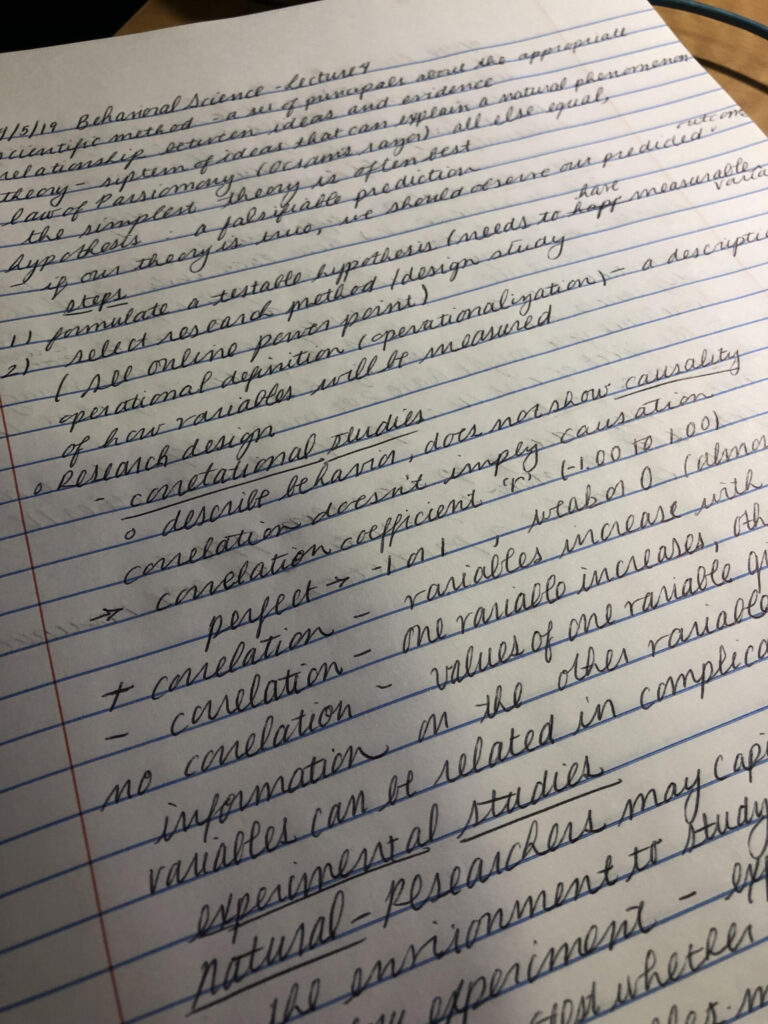 /5/19 Behavioral Science - Lecture 4
scientific method - a set of principals about the appropriate
relationship between ideas and evidence
theory - system of ideas that can explain a natural phenomenon
law of Parsimony (Ocsams razer): all else equal,
the simplest theory is often best
hypothesis - a falsifiable prediction
outcome
if our theory is true, we should observe our predicted
steps
have
1) formulate a testable hypothesis (needs to measurable
2) select research method / design study
( see online power point)
operational definition (operationalization) - a descriptio
of how variables will be measured
◦ Research design
- correlational studies
◦ describe behavior, does not show causality
correlation doesn't imply causation
→ correlation coefficient "r" (-1.00 to 1.00)
perfect → -1 or 1, weak or 0 (almos
+ correlation - variables increase with
- correlation - one variable increases, oth
no correlation - values of one variable
information on the other variable
variables can be related in complica
experimental studies
natural - Researchers may capi
the environment to study
experiment - exp
test whether